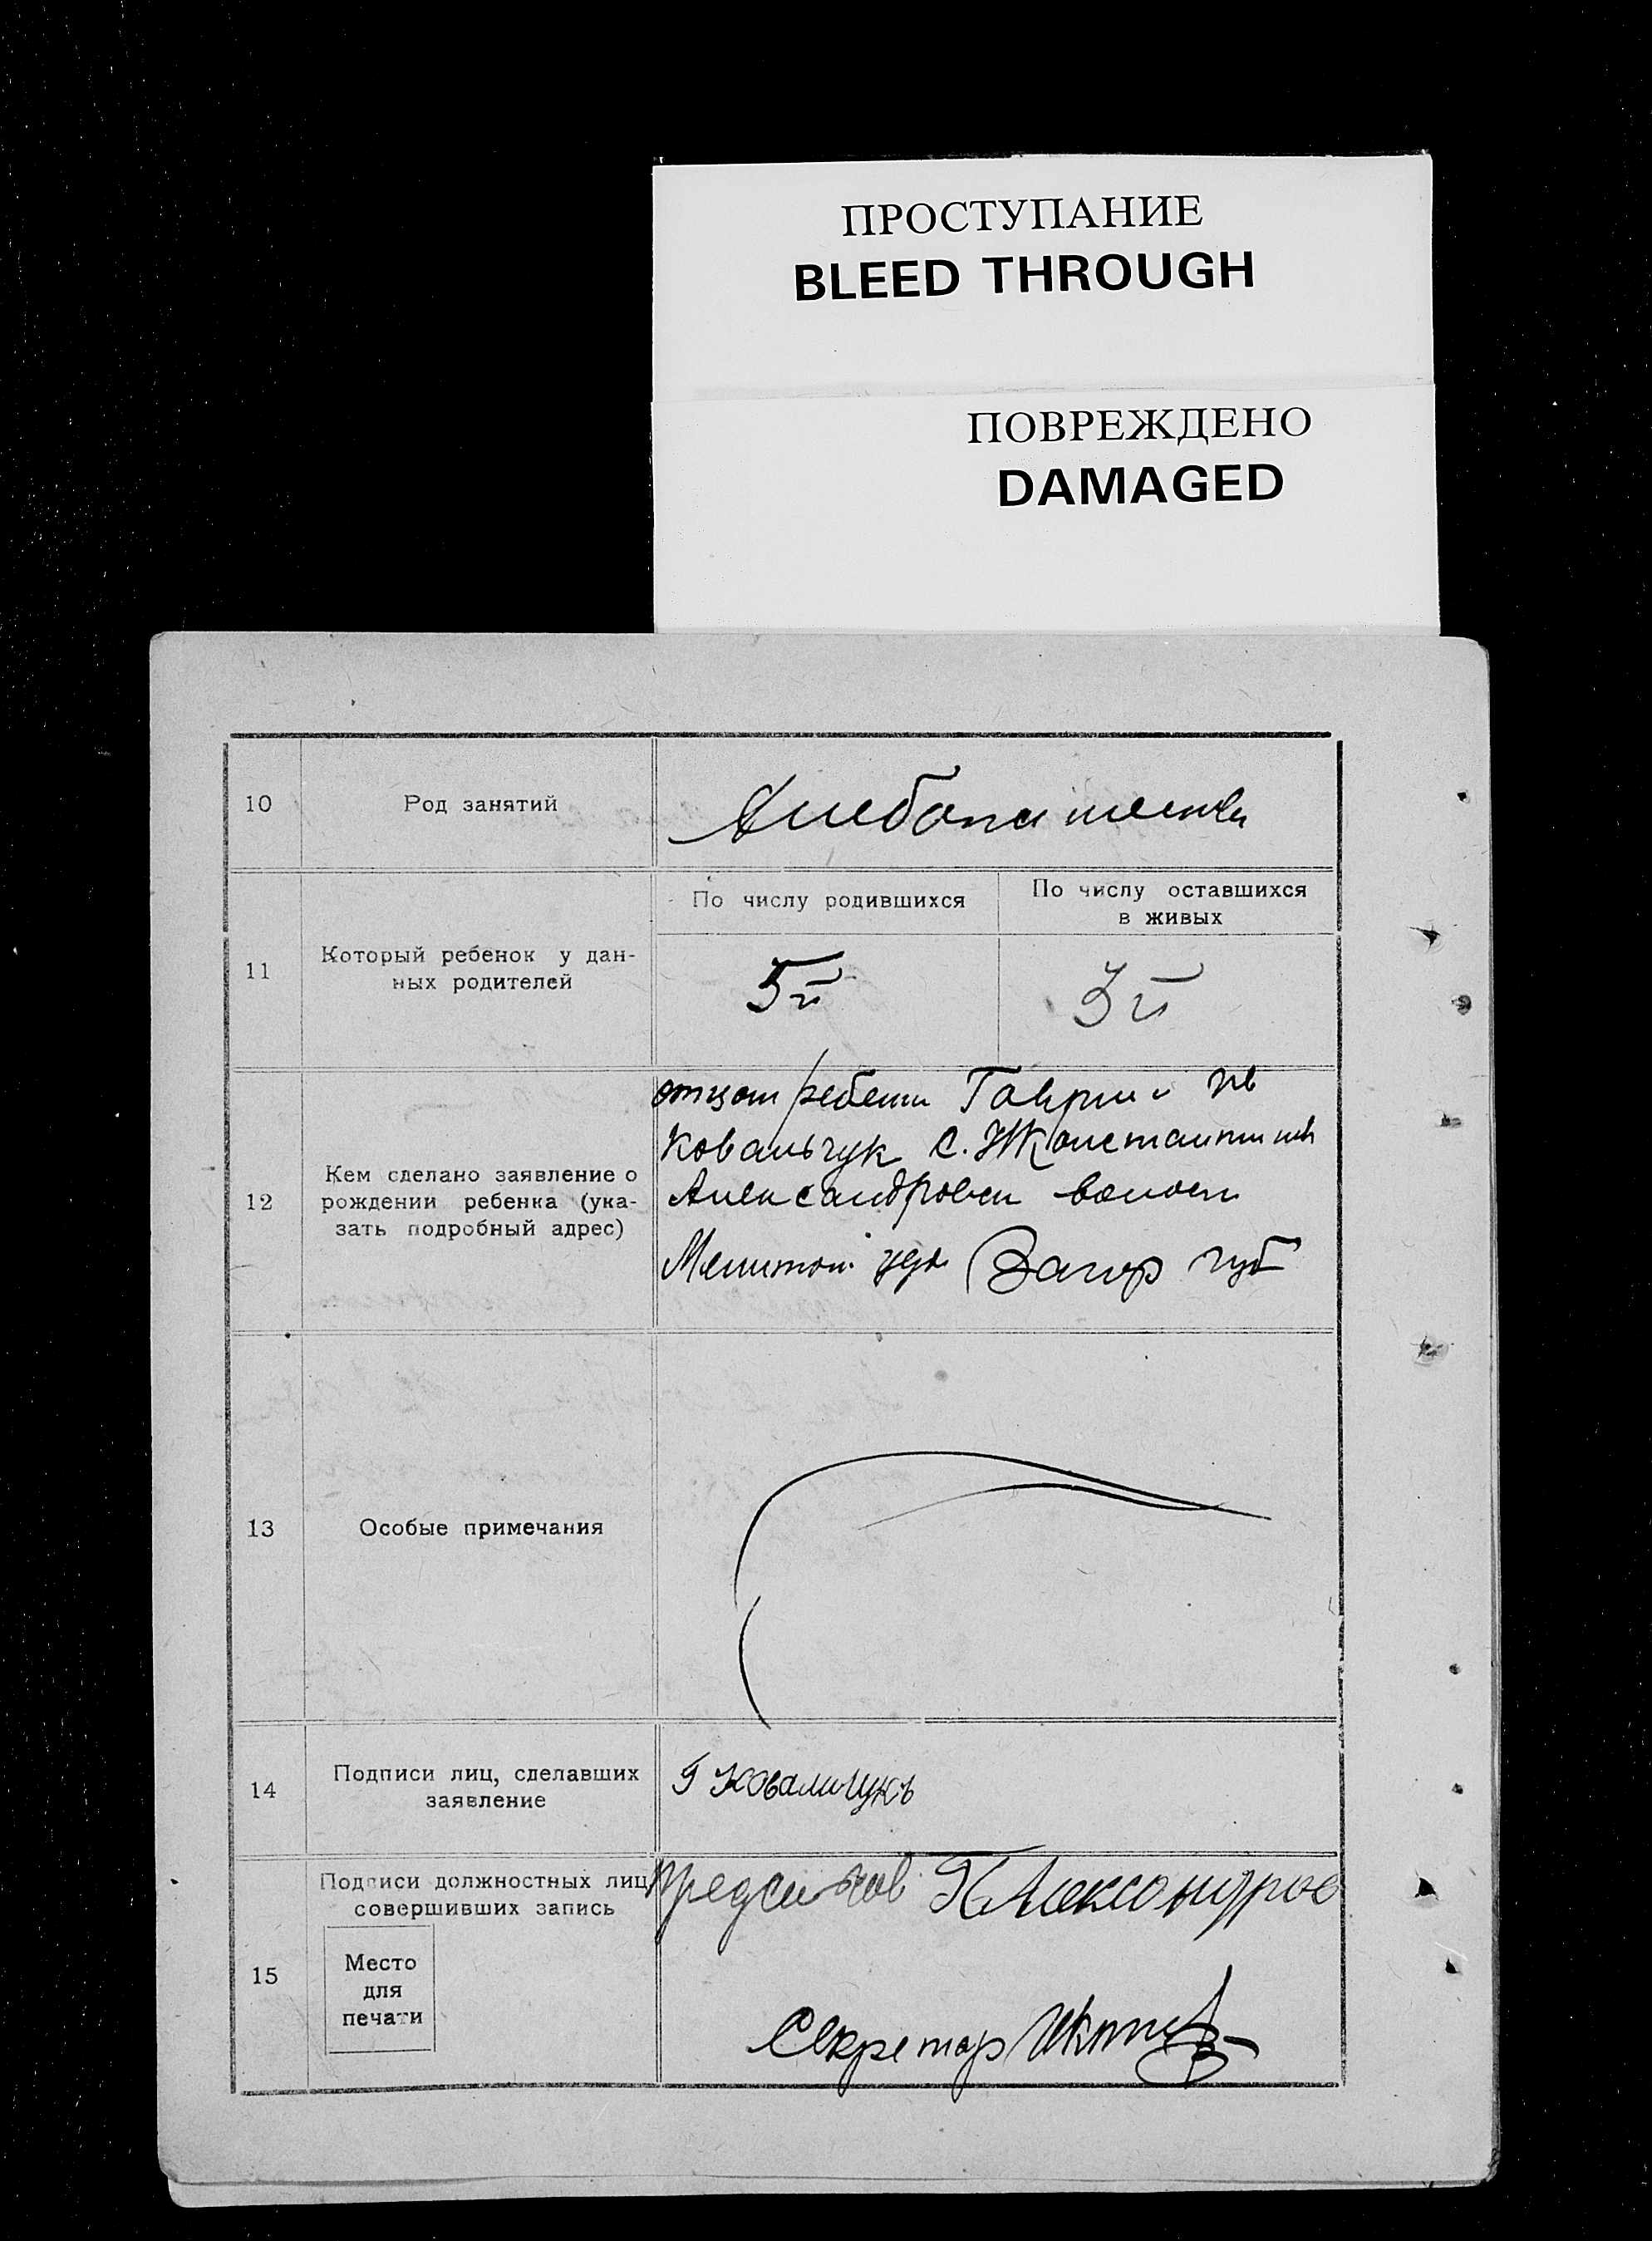 ПРОСТУПАНИЕ
BLEED THROUGH
ПОВРЕЖДЕНО
DAMAGED
10
Род занятий
Хлебопашество
11
Который ребенок у дан-
ных родителей
По числу родившихся
По числу оставшихся
в живых
5й
3й
12
Кем сделано заявление о
рождении ребенка (ука-
зать подробный адрес)
отцом ребенка Гаврил Ив
Ковальчук с. Константин
Александровск волост
Мелитоп уез Запор губ
13
Особые примечания
14
Подписи лиц, сделавших
заявление
Г Ковальчукъ
15
Подписи должностных лиц,
совершивших запись
Место
для
печати
Александров
Секретар